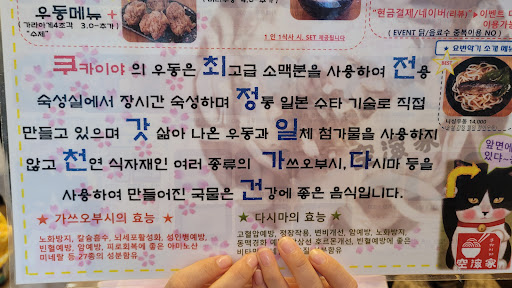 우동메뉴 +
가라아게4조각 3.0~추가)
"소제"
1인 1식사 시, SET 제공됩니다
"현금결제/네이버(
( EVENT 닭/음료수 중복이용 NO )
BEST
나싱우동 14,000
쿠카이야 의 우동은 최고급 소맥분을 사용하여 전용
숙성실에서 장시간 숙성하며 정통 일본 수타 기술로 직접
만들고 있으며 갓 삶아 나온 우동과 일체 첨가물을 사용하지
않고 천연 식자재인 여러 종류의 가쓰오부시,다시마 등을
사용하여 만들어진 국물은 건강에 좋은 음식입니다.
앞면에
있다~
★ 가쓰오부시의 효능 ★
노화방지, 칼슘흡수, 뇌세포활성화, 성인병예방,
빈혈예방, 암예방, 피로회복에 좋은 아미노산
미네랄 등 27종의 성분함유.
★ 다시마의 효능 ★
고혈압예방, 정장작용, 변비개선, 암예방, 노화방지,
동맥경화 갑상선 호르몬개선, 빈혈예방에 좋은
비타 함유.
空海家